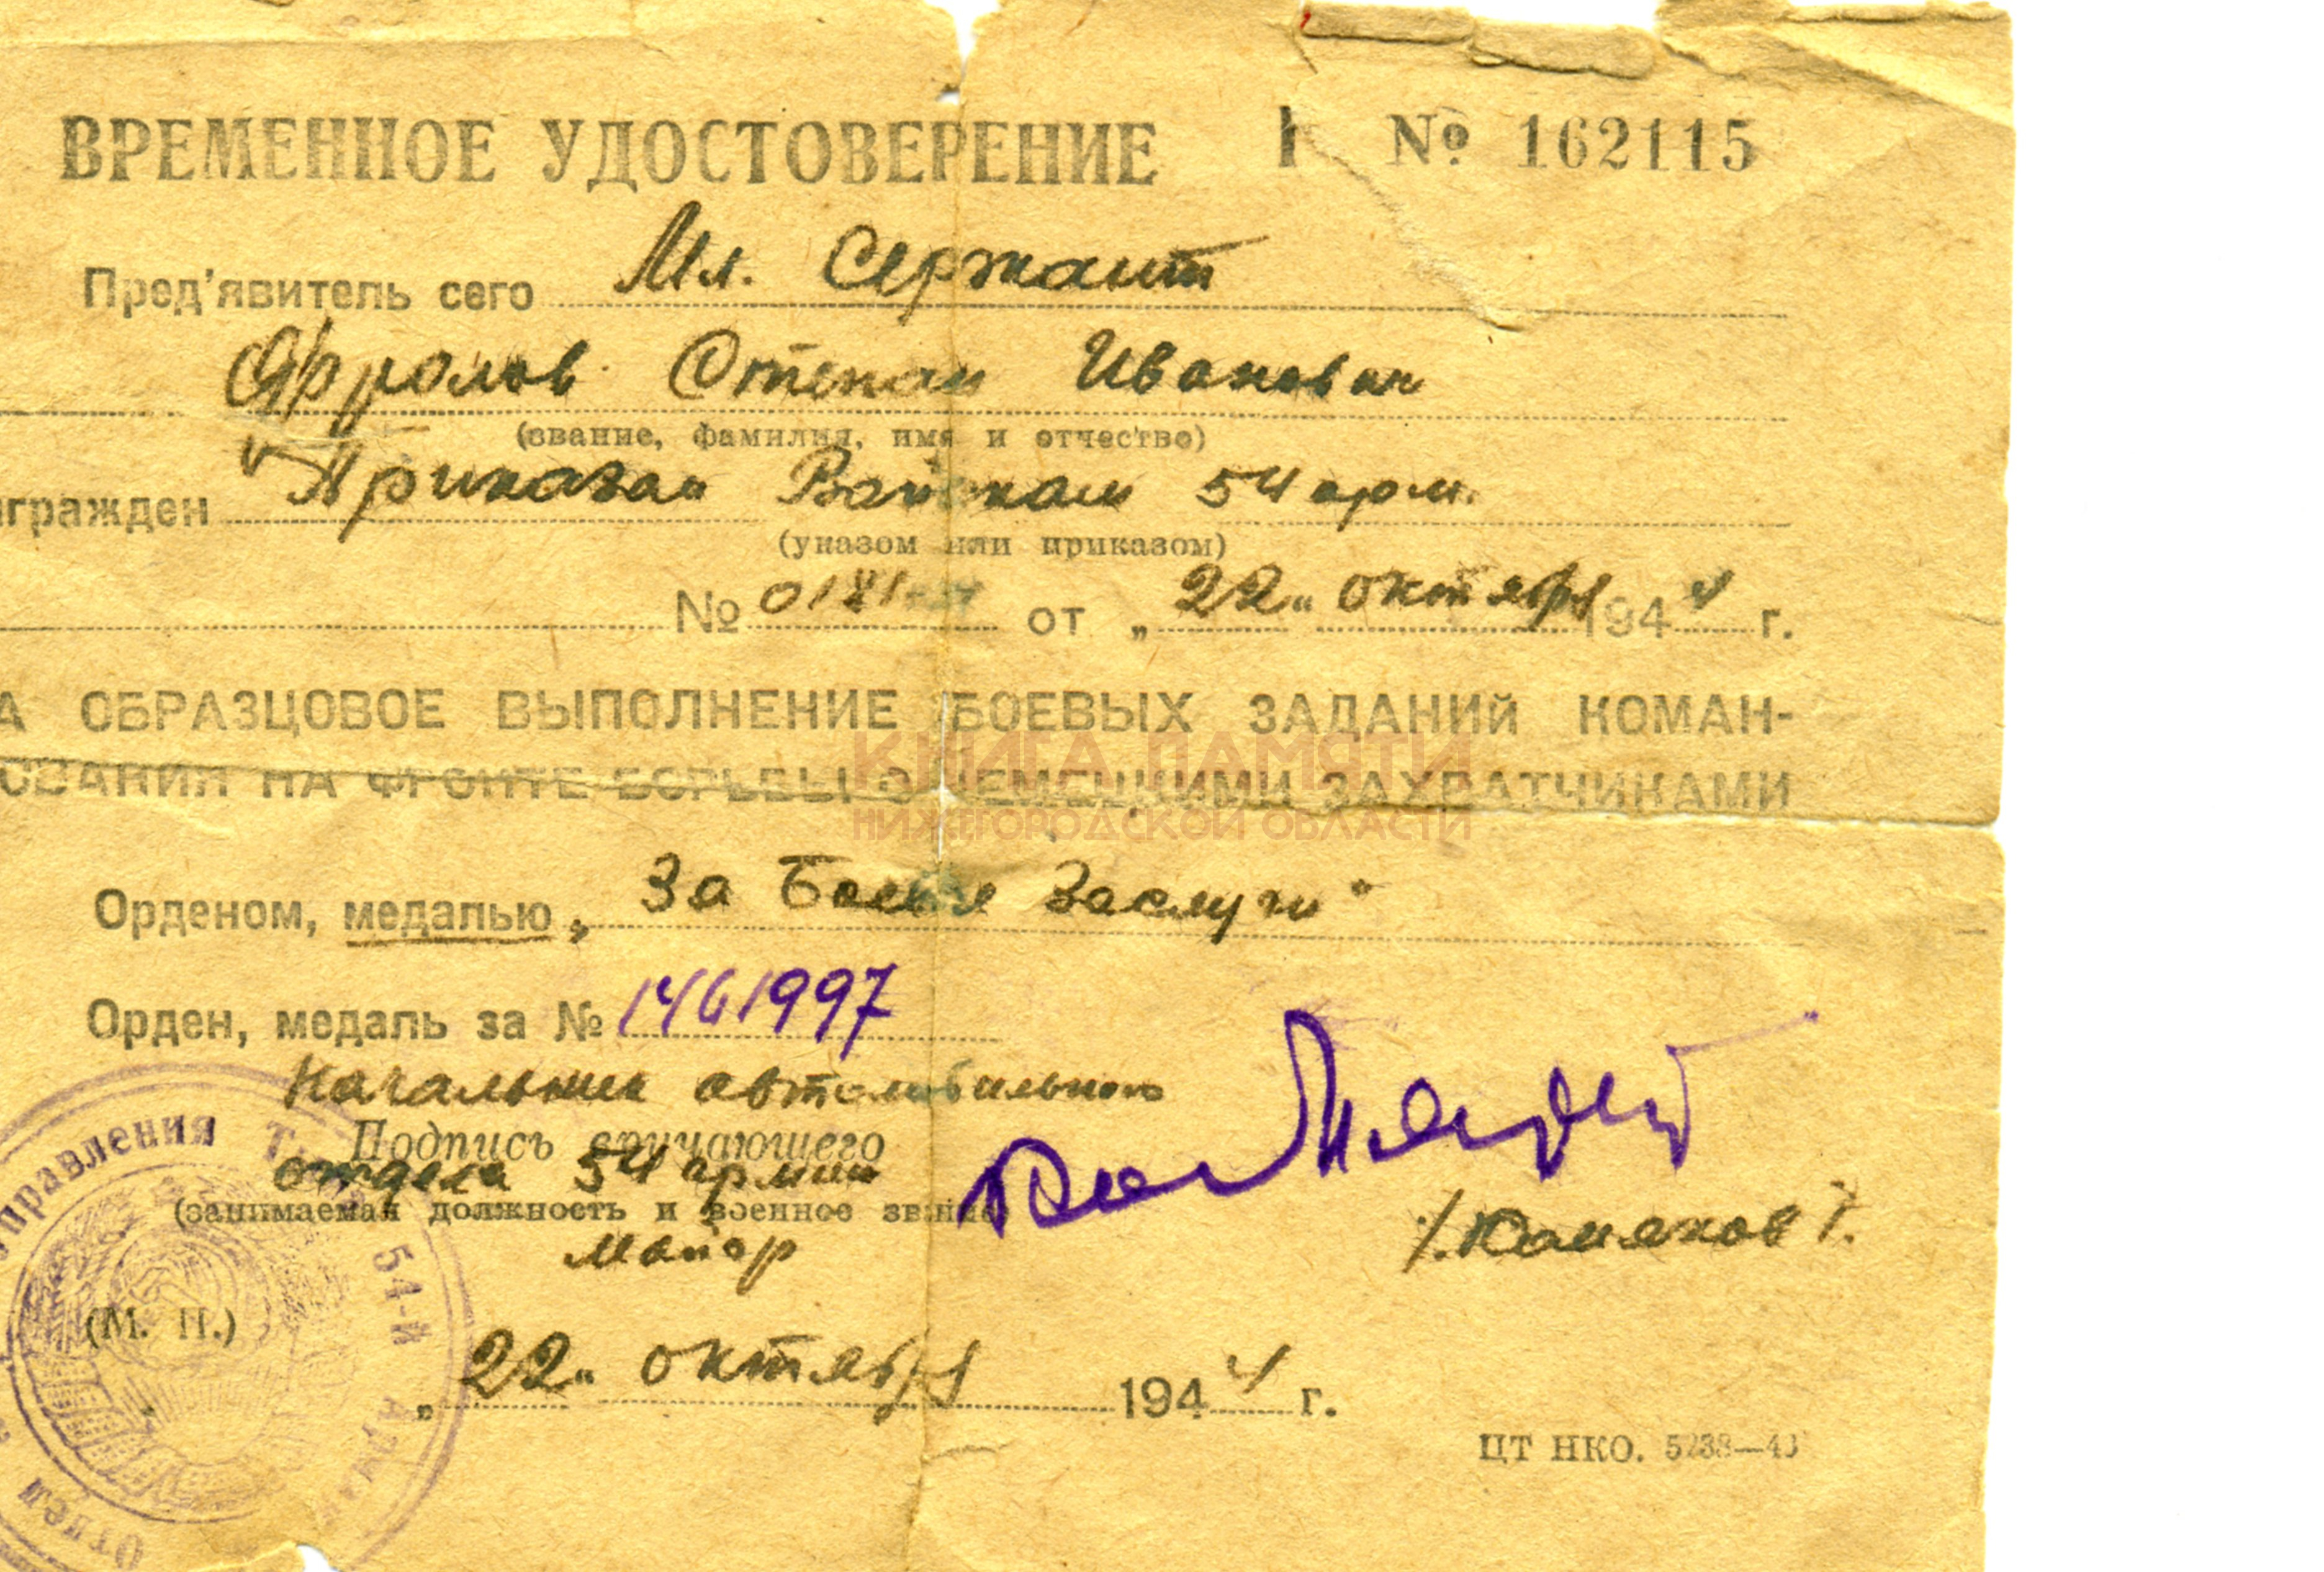 ВРЕМЕННОЕ УДОСТОВЕРЕНИЕ № 162115
Пред'явитель сего Мл. Сержант
Фролов Степан Иванович
(звание, фамилия, имя и отчество)
награжден "Приказом Войскам 54 арм.
(указом или приказом)
№ 0181 от „22" октября 1944 г.
А ОБРАЗЦОВОЕ ВЫПОЛНЕНИЕ БОЕВЫХ ЗАДАНИЙ КОМАН-
ОВАНИЯ НА ФРОНТЕ БОРЬБЫ С НЕМЕЦКИМИ ЗАХВАТЧИКАМИ
КНИГА ПАМЯТИ
НИЖЕГОРОДСКОЙ ОБЛАСТИ
Орденом, медалью „За Боевые Заслуги"
Орден, медаль за № 1461997
Начальник автомобильного
Подпись вручающего
отдела 54 армии
(занимаемая должность и военное звание)
Майор
(М. П.)
„22" октября 1944 г.
ЦТ НКО. 5238—43
управления 54-й Армии Отдел